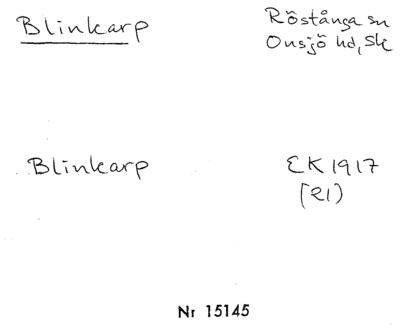 Blinkarp
Röstånga sn
Onsjö hd, Sk
Blinkarp
EK 1917
(21)
Nr 15145